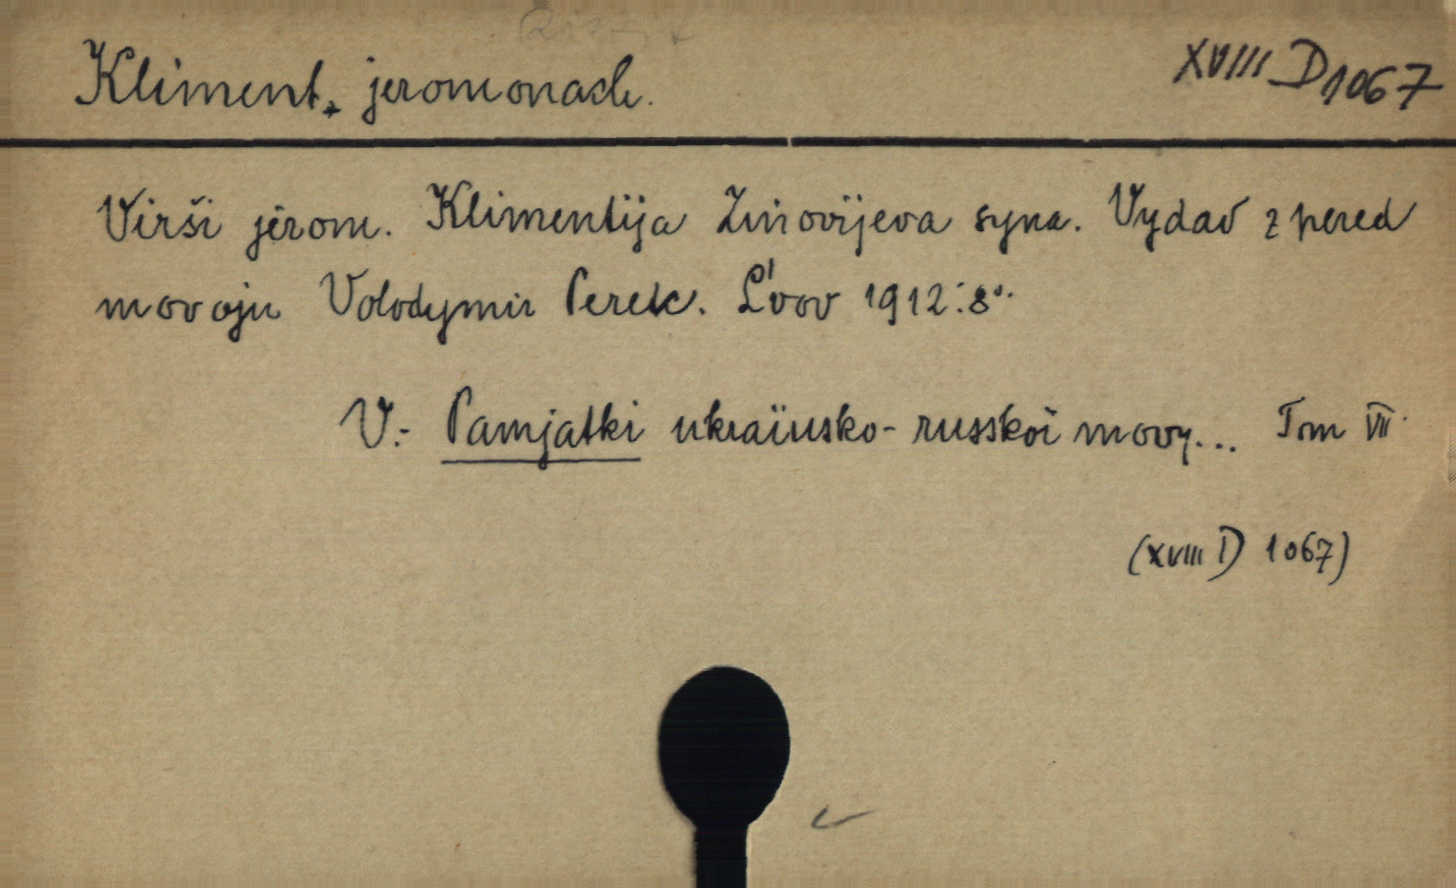 Kliment, jeromonach.
XVIII D 1067
Virši jerom. Klimentija Zinovijeva syna. Vydav z pered
movoju Volodymir Peretc. L'vov 1912. 8°.
V.- Pamjatki ukraïnsko-russkoï movy... Tom VII.
(XVIII D 1067)